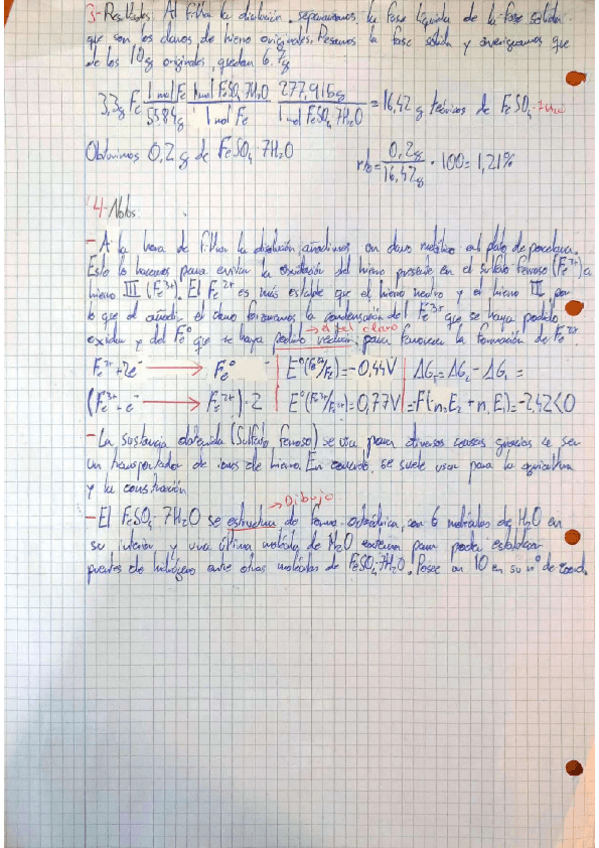 3- Resultados: Al filtrar la disolución, separamos la fase líquida de la fase sólida
que son los clavos de hierro originales. Pesamos la fase sólida y averiguamos que
de los 10g originales, quedan 6.7g
3,3g Fe 1 mol Fe / 55,84g 1 mol FeSO4·7H2O / 1 mol Fe 277,916g / 1 mol FeSO4·7H2O = 16,42 g teóricos de FeSO4·7H2O
Obtenimos 0,2 g de FeSO4·7H2O rto = 0,2g / 16,42g · 100 = 1,21%
4- Notas:
- A la hora de filtrar la disolución, añadimos un clavo metálico al plato de porcelana.
Esto lo hacemos para evitar la oxidación del hierro presente en el sulfato ferroso (Fe2+) a
hierro III (Fe3+). El Fe2+ es más estable que el hierro neutro y el hierro III, por
lo que al añadir el clavo forzamos la del Fe3+ que se haya podido
→ el del clavo
oxidar y del Fe0 que se haya podido reducir, para favorecer la formación de Fe2+.
Fe2+ + 2e- → Fe0 E0(Fe2+/Fe) = -0,44V ΔG1 = ΔG2 - ΔG1 =
(Fe3+ e- → Fe2+)·2 E0(Fe3+/Fe2+) = 0,77V = F(-n2E2 + n1E1) = -2,42 < 0
- La sustancia obtenida (Sulfato ferroso) se usa para diversas causas gracias a ser
un transportador de iones de hierro. En concreto, se suele usar para la agricultura
y la construcción
→ Dibujo
- El FeSO4·7H2O se estructura de forma octaédrica, con 6 moléculas de H2O en
su interior y una última molécula de H2O externa para poder establecer
puentes de hidrógeno entre otras moléculas de FeSO4·7H2O. Posee un 10 en su nº de coord.